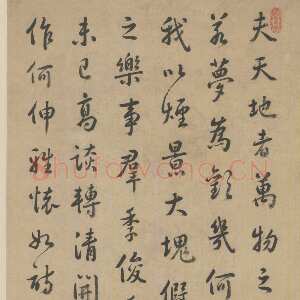 夫天地者萬物之
若夢為歡幾何
我以煙景大塊假
之樂事羣季俊
未已高談轉清開
作何伸雅懷如詩
shufawang.CN